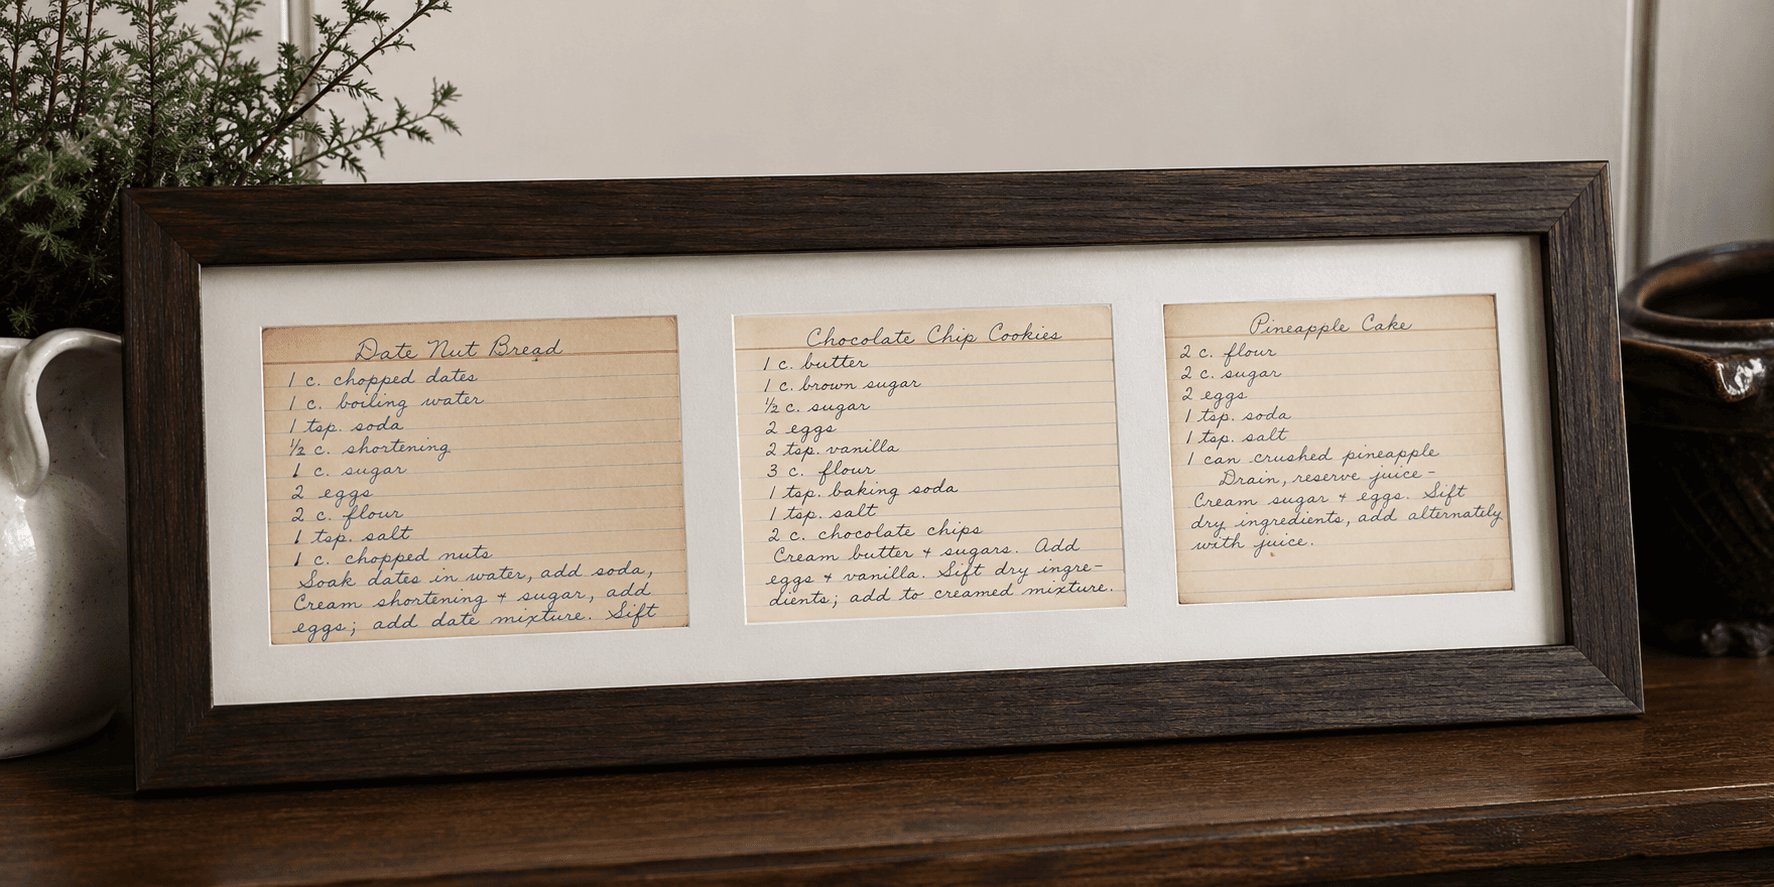 Date Nut Bread
1 c. chopped dates
1 c. boiling water
1 tsp. soda
½ c. shortening
1 c. sugar
2 eggs
2 c. flour
1 tsp. salt
1 c. chopped nuts
Soak dates in water, add soda,
Cream shortening + sugar, add
eggs; add date mixture. Sift
Chocolate Chip Cookies
1 c. butter
1 c. brown sugar
½ c. sugar
2 eggs
2 tsp. vanilla
3 c. flour
1 tsp. baking soda
1 tsp. salt
2 c. chocolate chips
Cream butter + sugars. Add
eggs + vanilla. Sift dry ingre-
dients; add to creamed mixture.
Pineapple Cake
2 c. flour
2 c. sugar
2 eggs
1 tsp. soda
1 tsp. salt
1 can crushed pineapple
Drain, reserve juice -
Cream sugar + eggs. Sift
dry ingredients, add alternately
with juice.